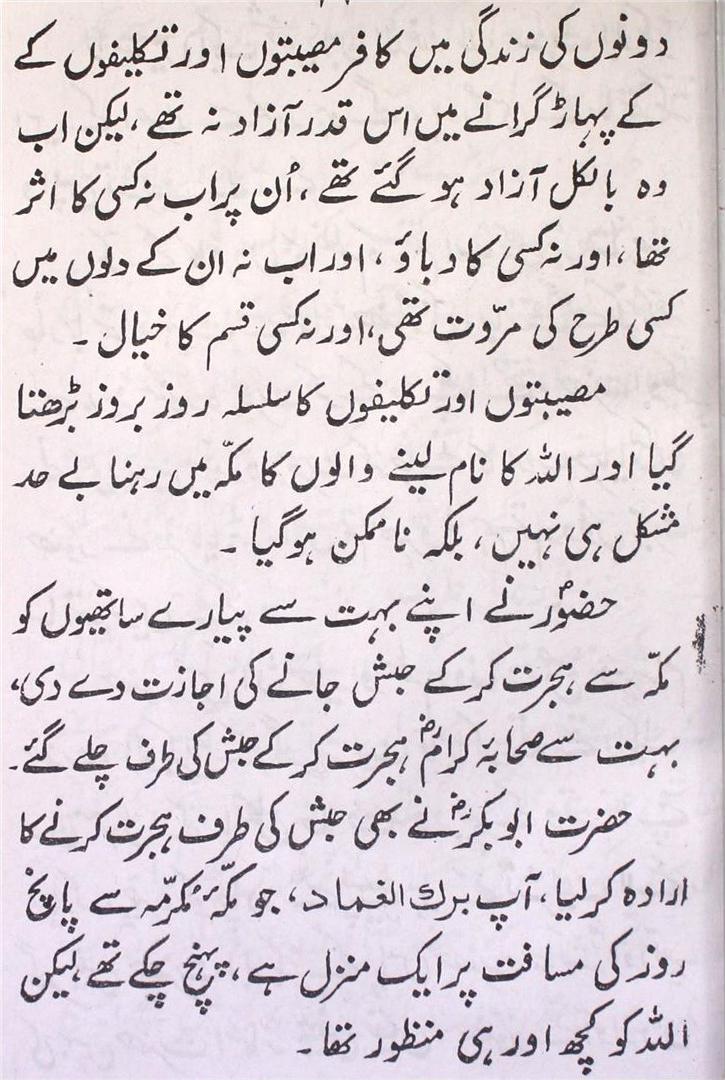 دونوں کی زندگی میں کافر مصیبتوں اور تکلیفوں کے
کے پہاڑ گرانے میں اس قدر آزاد نہ تھے، لیکن اب
وہ بالکل آزاد ہو گئے تھے، اُن پر اب نہ کسی کا اثر
تھا، اور نہ کسی کا دباؤ، اور اب نہ ان کے دلوں میں
کسی طرح کی مرّوت تھی، اور نہ کسی قسم کا خیال۔
مصیبتوں اور تکلیفوں کا سلسلہ روز بروز بڑھتا
گیا اور اللہ کا نام لینے والوں کا مکّہ میں رہنا بے حد
مشکل ہی نہیں، بلکہ ناممکن ہوگیا۔
حضورؐ نے اپنے بہت سے پیارے ساتھیوں کو
مکّہ سے ہجرت کرکے حبش جانے کی اجازت دے دی،
بہت سے صحابۂ کرامؓ ہجرت کرکے حبش کی طرف چلے گئے۔
حضرت ابوبکرؓ نے بھی حبش کی طرف ہجرت کرنے کا
ارادہ کرلیا، آپ برك الغماد، جو مکّۂ مکرّمہ سے پانچ
روز کی مسافت پر ایک منزل ہے، پہنچ چکے تھے، لیکن
اللہ کو کچھ اور ہی منظور تھا۔